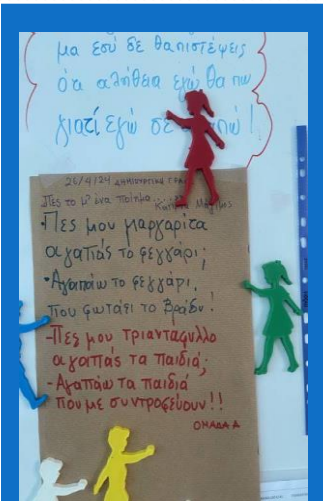 μα εσύ δε θα πιστέψεις
ότι αλήθεια εγώ θα πω
γιατί εγώ σε !
26/4/24 ΔΗΜΙΟΥΡΓΙΚΗ
Πες το μ' ένα ποίημα......
-Πες μου μαργαρίτα
αγαπάς το φεγγάρι;
-Αγαπάω το φεγγάρι,
που φωτάει το βράδυ!
-Πες μου τριαντάφυλλο
αγαπάς τα παιδιά;
-Αγαπάω τα παιδιά
που με συντροφεύουν!!
ΟΜΑΔΑ Α